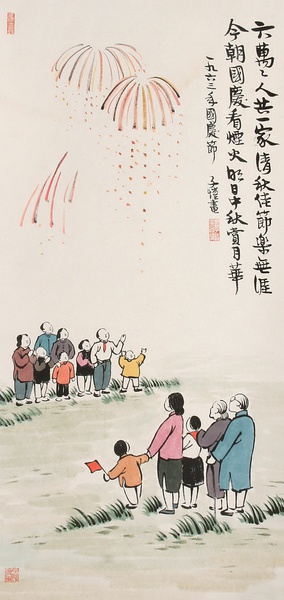 六萬万人共一家清秋佳節樂無涯
今朝國慶看煙火明日中秋賞月華
一九六三年國慶節
子愷畫